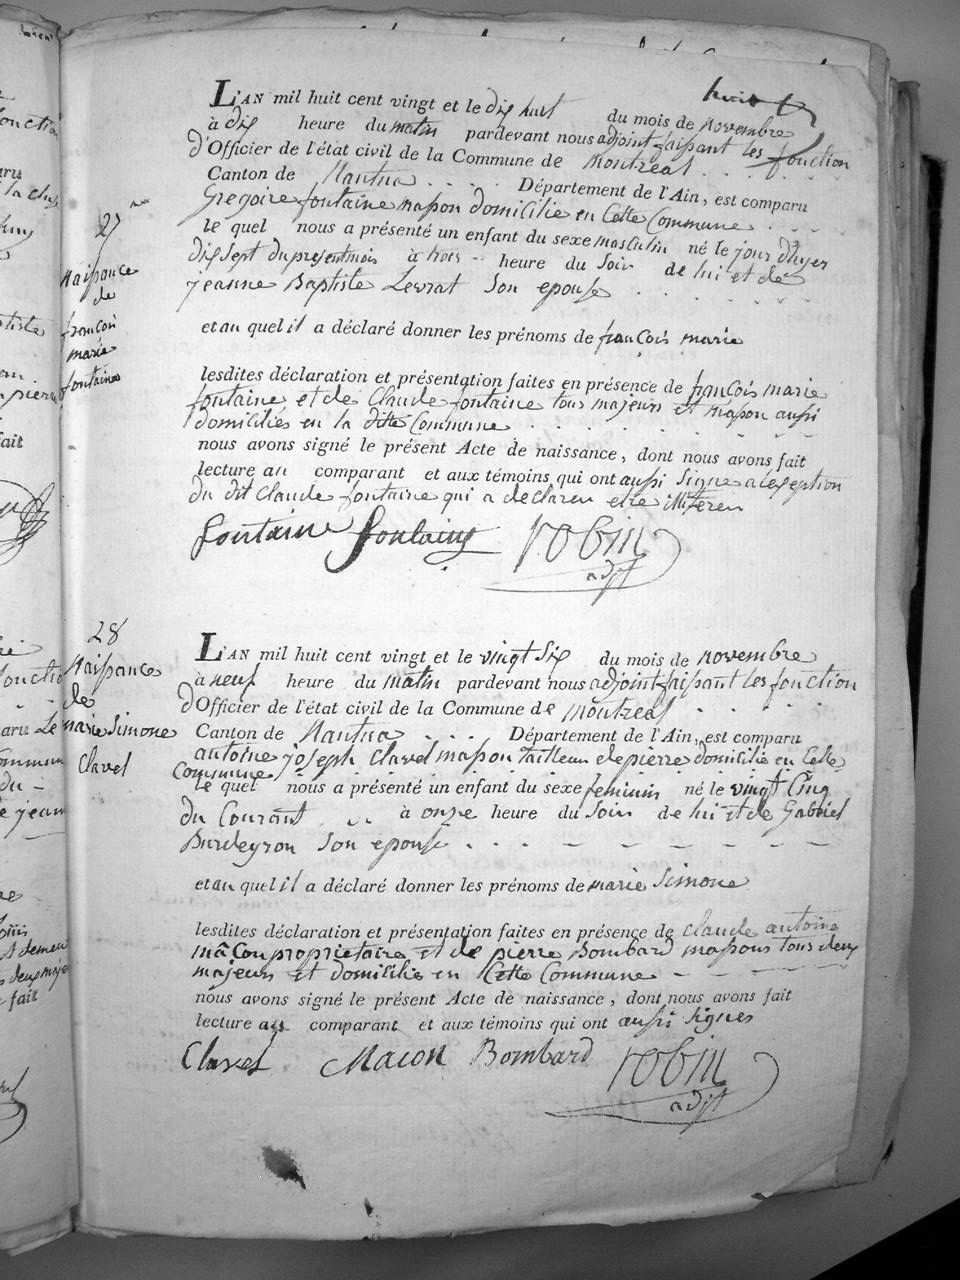 huit
27
Naissance
de
françois
marie
fontaine
L'AN mil huit cent vingt et le dix huit du mois de novembre
à dix heure du matin pardevant nous adjoint faisant les fonction
d'Officier de l'état civil de la Commune de Montreal . . . . . .
Canton de Nantua . . . . Département de l'Ain, est comparu
Gregoire fontaine masson domicilié en Cette Commune . . . .
le quel nous a présenté un enfant du sexe masculin né le jour d'hyer
dix sept du present mois à trois heure du Soir de lui et de
jeanne Baptiste Levrat Son epouse . . . . . . . .
et au quel il a déclaré donner les prénoms de françois marie
lesdites déclaration et présentation faites en présence de françois marie
fontaine et de Claude fontaine tous majeurs et masson aussi
domiciliés en la ditte Commune . . . . . . . .
nous avons signé le présent Acte de naissance, dont nous avons fait
lecture au comparant et aux témoins qui ont aussi Signe a lexseption
du dit Claude fontaine qui a declaren etre
fontaine fontaine robin
adjt
28
Naissance
de
marie Simone
Clavel
L'AN mil huit cent vingt et le vingt Six du mois de novembre
à neuf heure du matin pardevant nous adjoint faisant les fonction
d'Officier de l'état civil de la Commune de Montreal . . . . . .
Canton de Nantua . . . . Département de l'Ain, est comparu
antoine joseph Clavel masson tailleur de pierre domicilié en Cette
Commune . . . . . . . . . .
le quel nous a présenté un enfant du sexe feminin né le vingt Cinq
du Courant . . à onze heure du Soir de lui et de Gabriel
Burdeyron Son epouse . . . . — — — — — —
et au quel il a déclaré donner les prénoms de marie Simone
lesdites déclaration et présentation faites en présence de Claude antoine
mâcon propriétaire et de pierre Bombard massons tous deux
majeurs et domiciliés en Cette Commune — — — — —
nous avons signé le présent Acte de naissance, dont nous avons fait
lecture aux comparant et aux témoins qui ont aussi Signes
Clavel Macon Bombard robin
adjt